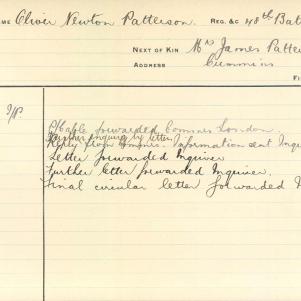 ME Oliver Newton Patterson. REG. &C 48th Bat
NEXT OF KIN Mrs James Patte
ADDRESS Cummins
FI
Cable forwarded Commr London.
Further inquiry by letter.
Reply from Commr. Information sent Inqu
Letter forwarded Inquirer
Further letter forwarded Inquirer.
Final circular letter forwarded